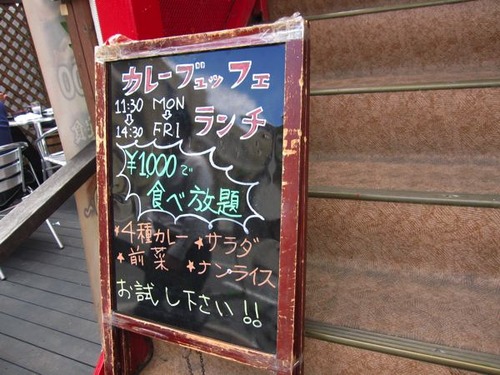 カレーブュッフェ
11:30 MON
⇩ ⇩ ランチ
14:30 FRI
¥1,000で
食べ放題
★4種カレー ★サラダ
★前菜 ★ナンライス
お試し下さい!!